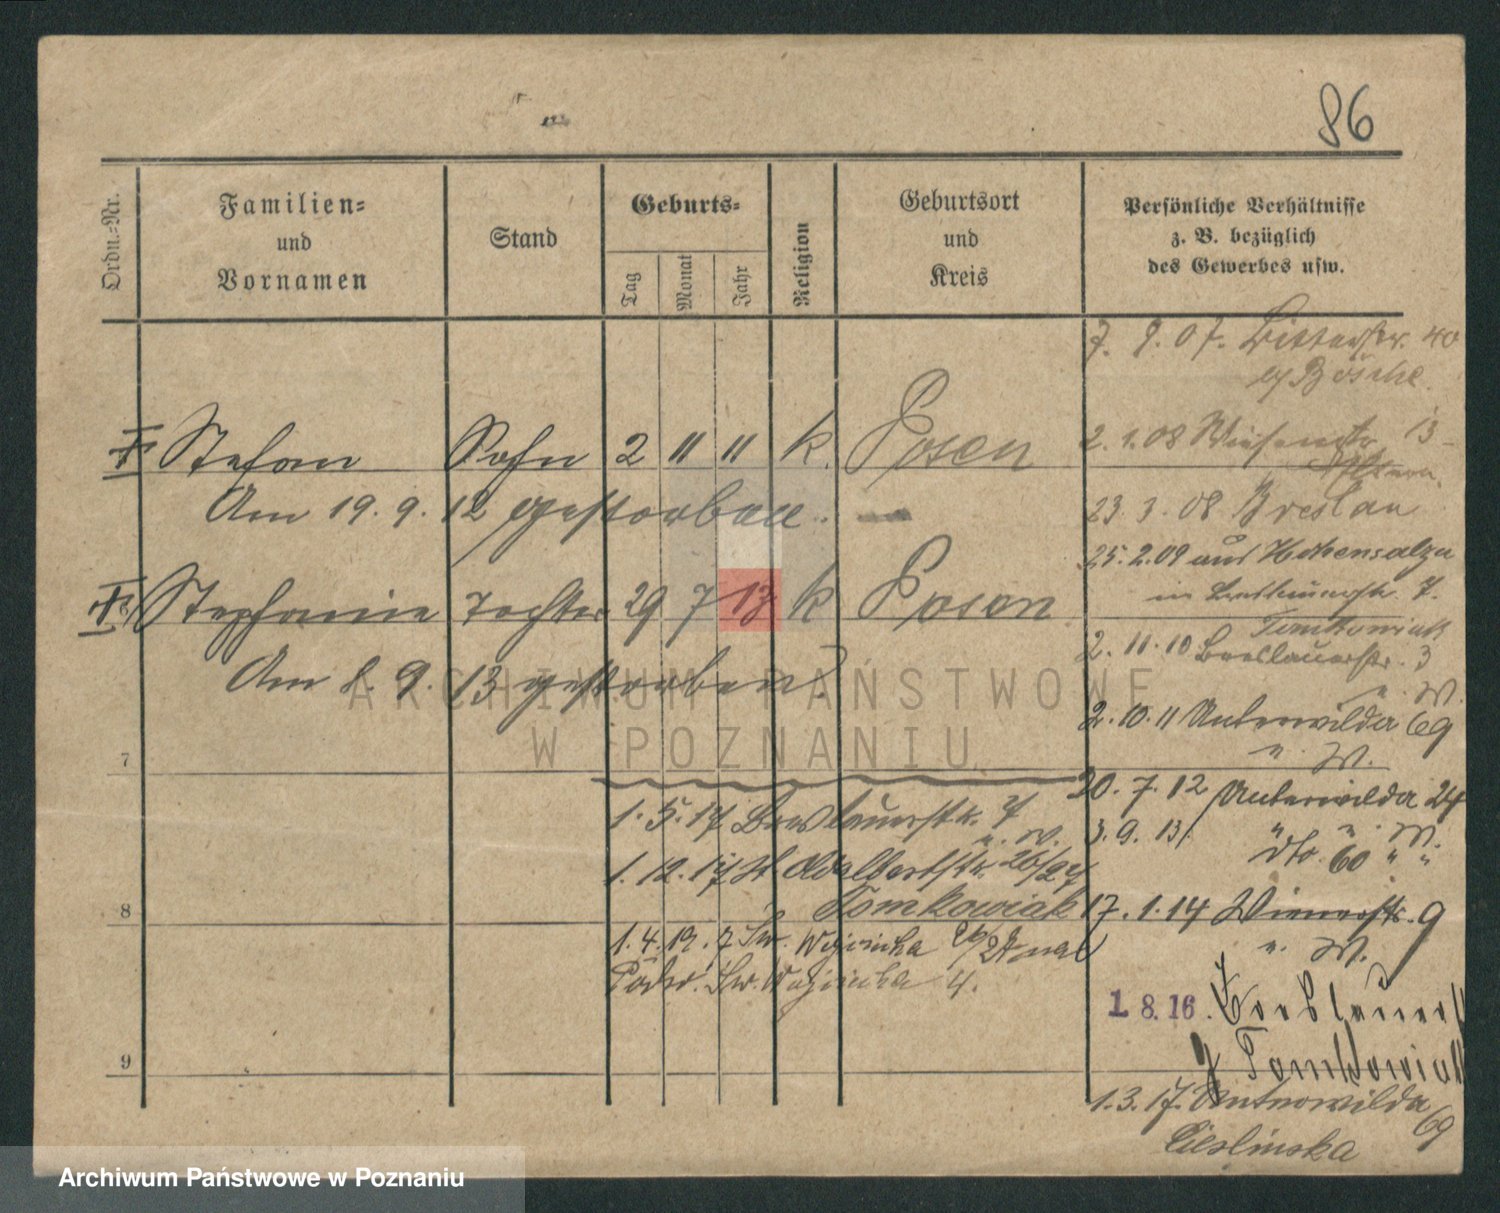 86
Ordn.-Nr.
Familien-
und
Vornamen
Stand
Geburts-
Tag
Monat
Jahr
Religion
Geburtsort
und
Kreis
Persönliche Verhältnisse
z. B. bezüglich
des Gewerbes usw.
7. 9. 07. 40
Stefan Sohn 2 11 11 k. Posen
Am 19. 9. 12 gestorben.
Stephanie Tochter 29 7 13 k Posen
Am 8. 9. 13 gestorben.
2. 1. 08 Wiesenstr. 13
23. 3. 08 Breslau
25. 2. 09 aus Hohensalza
in 7.
Tomkowiak
2. 11. 10 Breslauerstr. 3
u. W.
2. 10. 11 Unterwilda 69
u. W.
30. 7. 12 Unterwilda 24
" " W.
3. 9. 13 dto. 60 " "
17. 1. 14 Wienerstr. 9
u. W.
1 8. 16. Breslauerst
Tomkowiak
1. 3. 17. Unterwilda 69
Cieslinska
7
1. 5. 17 Breslauerstr. 7
u. W.
1. 12. 17 St. Adalbertstr. 26/27
Tomkowiak
8
1. 4. 19. Św. Wojciecha 26/27 na
Podw. Św. Wojciecha 4.
9
ARCHIWUM PAŃSTWOWE
W POZNANIU
Archiwum Państwowe w Poznaniu